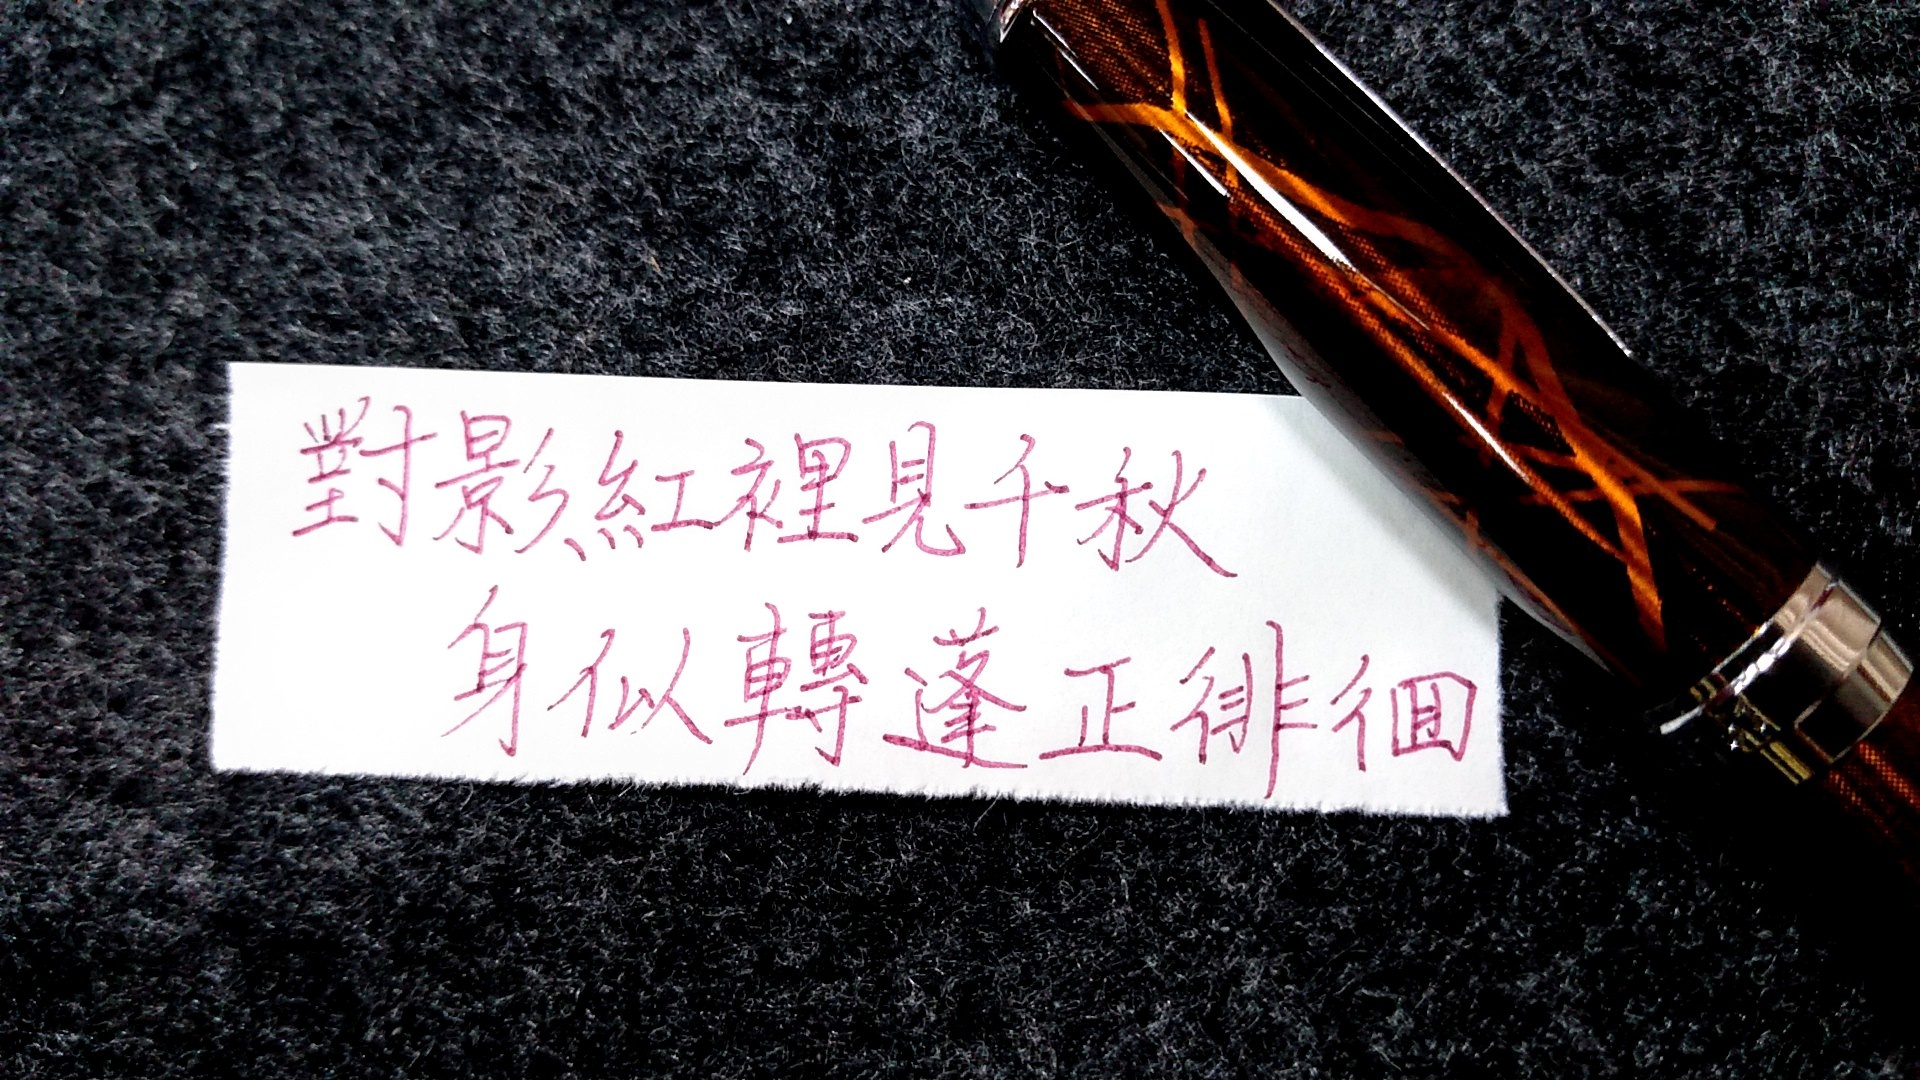 對影紅裡見千秋
身似轉蓬正徘徊